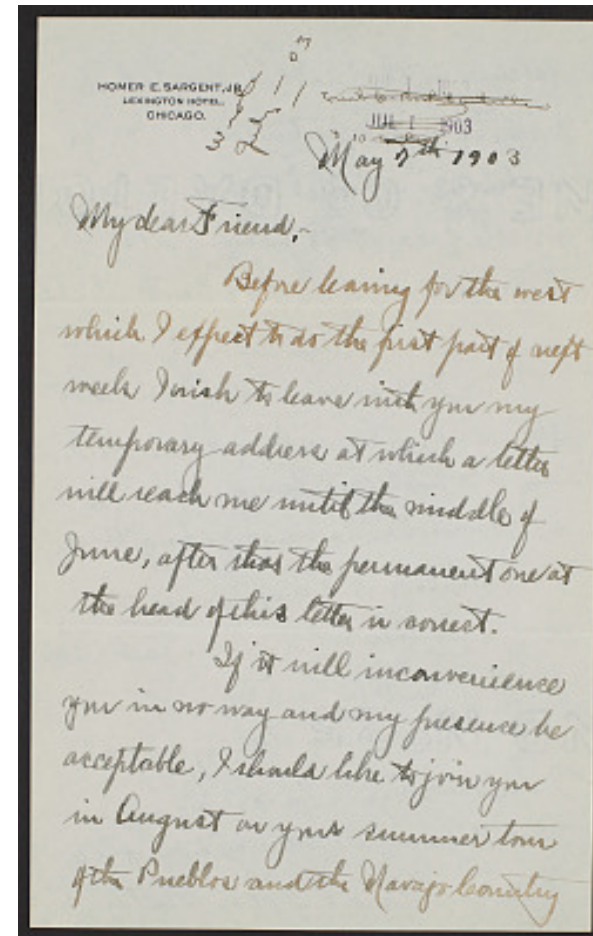 HOMER E. SARGENT, JR.
LEXINGTON HOTEL,
CHICAGO.
JUL 1 1903
May 7th 1903
My dear Friend,-
Before leaving for the west
which I expect to do the first part of next
week I wish to leave with you my
temporary address at which a letter
will reach me until the middle of
June, after that the permanent one at
the head of this letter is correct.
If it will inconvenience
you in no way and my presence be
acceptable, I should like to join you
in August on your summer tour
of the Pueblos and the Navajo Country